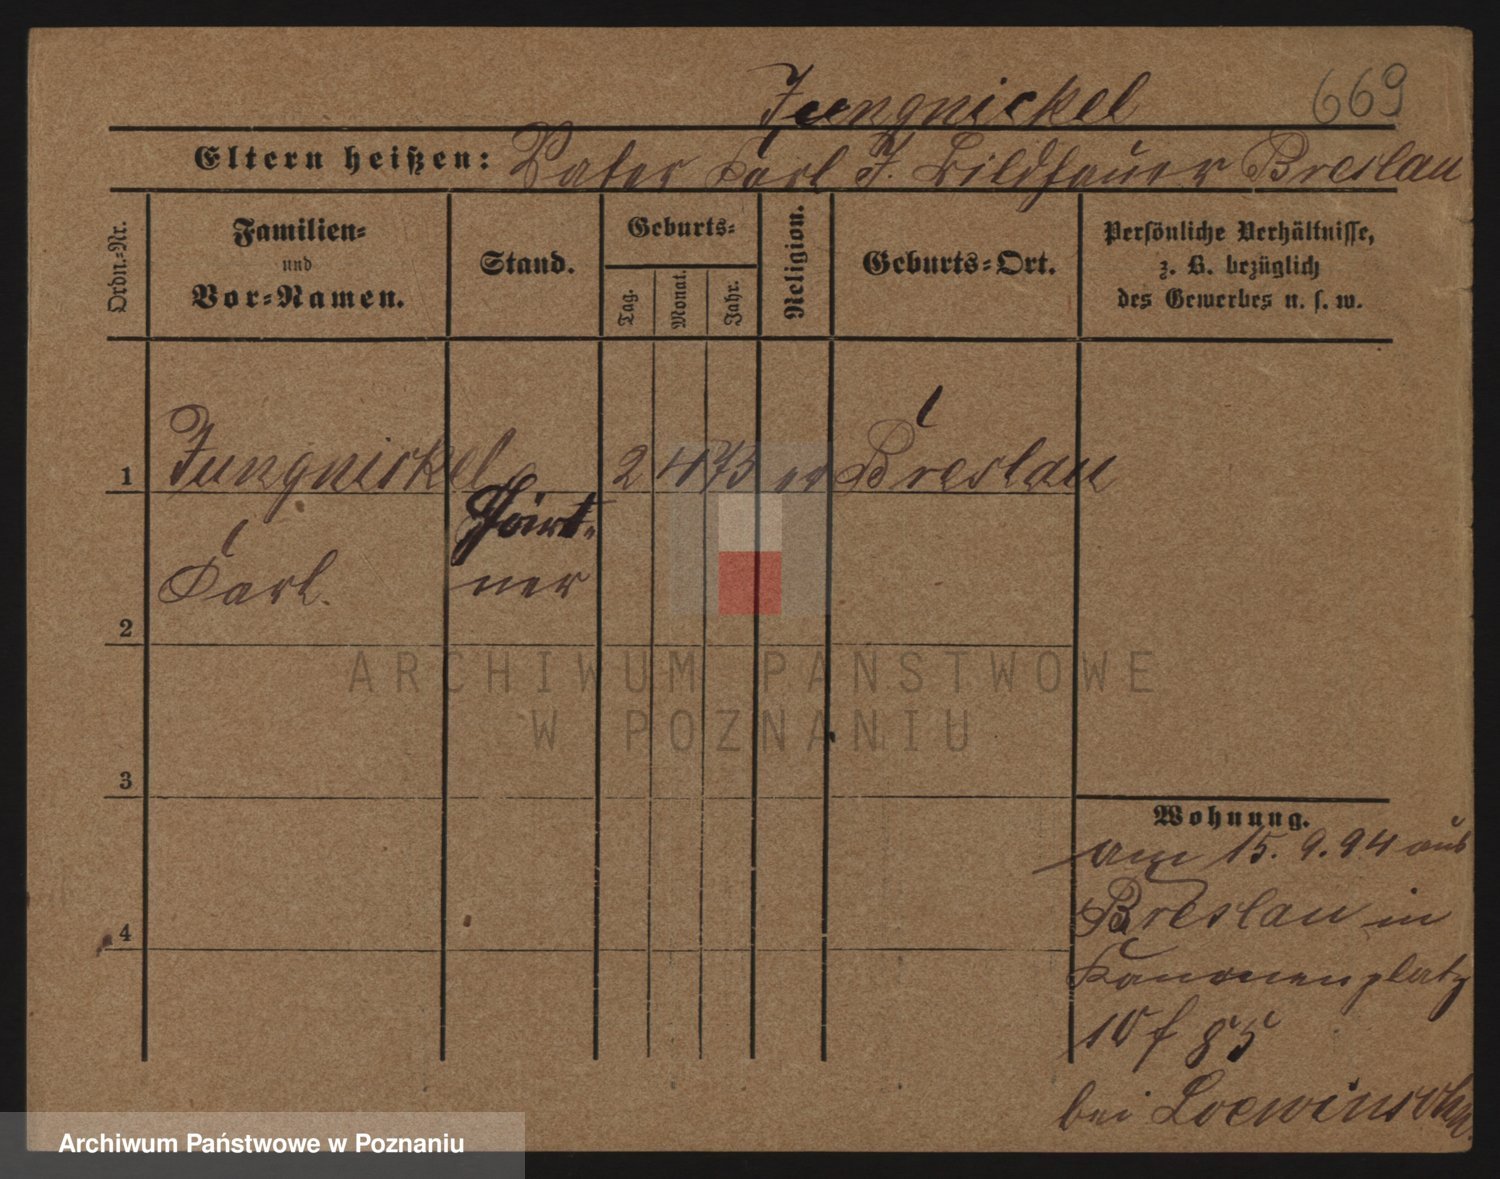 Jungnickel 669
Eltern heißen: Vater Karl J. Bildhauer Breslau
Ordn.-Nr.
Familien-
und
Vor-Namen.
Stand.
Geburts-
Tag. Monat. Jahr.
Religion.
Geburts-Ort.
Persönliche Verhältnisse,
z. B. bezüglich
des Gewerbes u. s. w.
1 Jungnickel 2 4 73 ev Breslau
Gärt-
Karl. ner
2
ARCHIWUM PAŃSTWOWE
W POZNANIU
3
Wohnung.
am 15. 9. 94 aus
Breslau in
Kanonenplatz
10 f 85
4
bei Loewinsohn
Archiwum Państwowe w Poznaniu